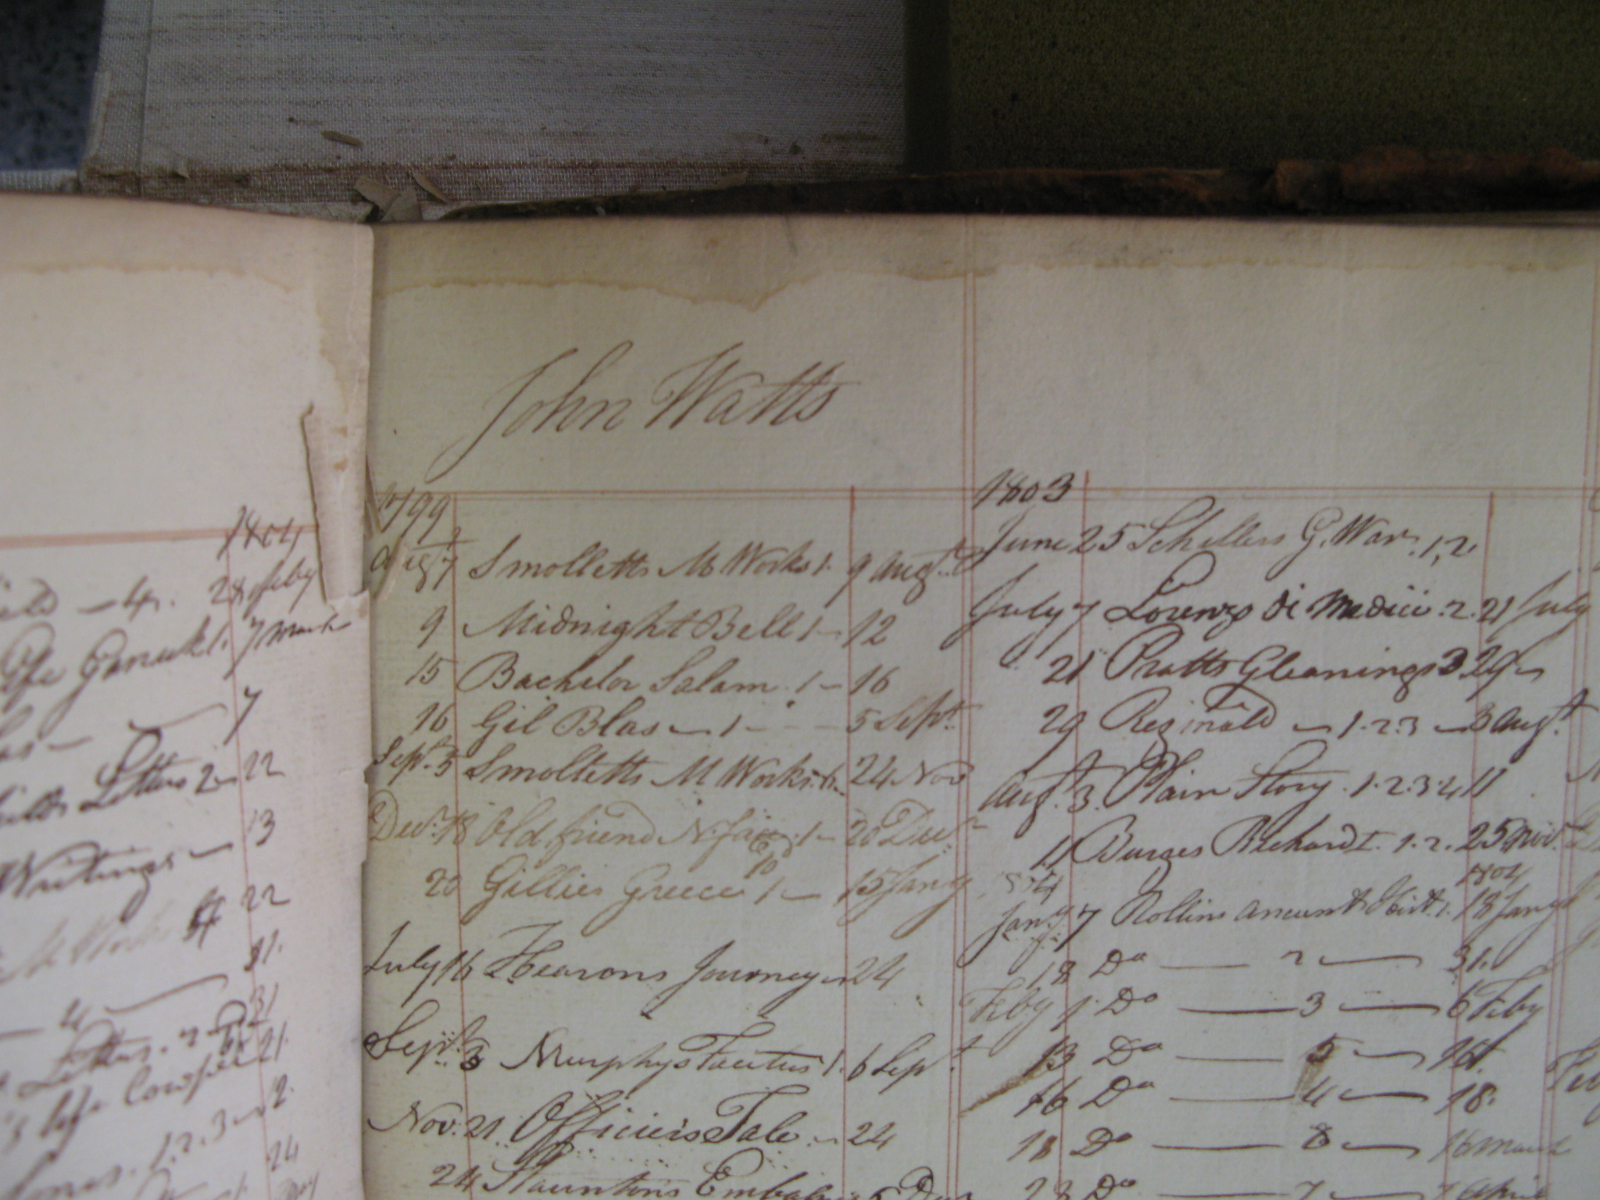 1804
4. 28 feby
Life Garrick 1. 7 March
7
Letters 2 22
13
Writings
22
31.
4
31
Letters. 2
21.
life Cowper
1.2.3 12.
24
John Watts
1799
Aug 7 Smolletts M Works 1. 9 Augt
9 Midnight Bell 1 12
15 Bachelor Salam. 1 16
16 Gil Blas 1 5 Sept.
Sept. 5 Smolletts M Works. 6. 24 Nov
Decr. 18 Old friend N face 1 20 Decr
20 Gillies Greece 1 15 Jany
July 16 Hearons Journey 24
Sept. 3 Murphys Tacitus 1. 6 Sept
Nov. 21. Officers Tale 24
24 Stauntons Embassy 5 Decr
1803
June 25 Schillers G. War. 1, 2.
July 7 Lorenzo di Medici. 2. 21 July
21 Pratts Gleanings 3 29
29 Reginald 1.2.3 3 Augt
Augt. 3. Plain Story. 1.2.3.4 11
11 Burges Richard I. 1.2. 25 Nov.
1804 1804
Jany. 7 Rollins ancient Hist. 1. 18 Jany
18 Do 2 31.
Feby 1. Do 3 6 Feby
13 Do 5 16.
16 Do 4 18.
18 Do 8 16 March
23 Do 7